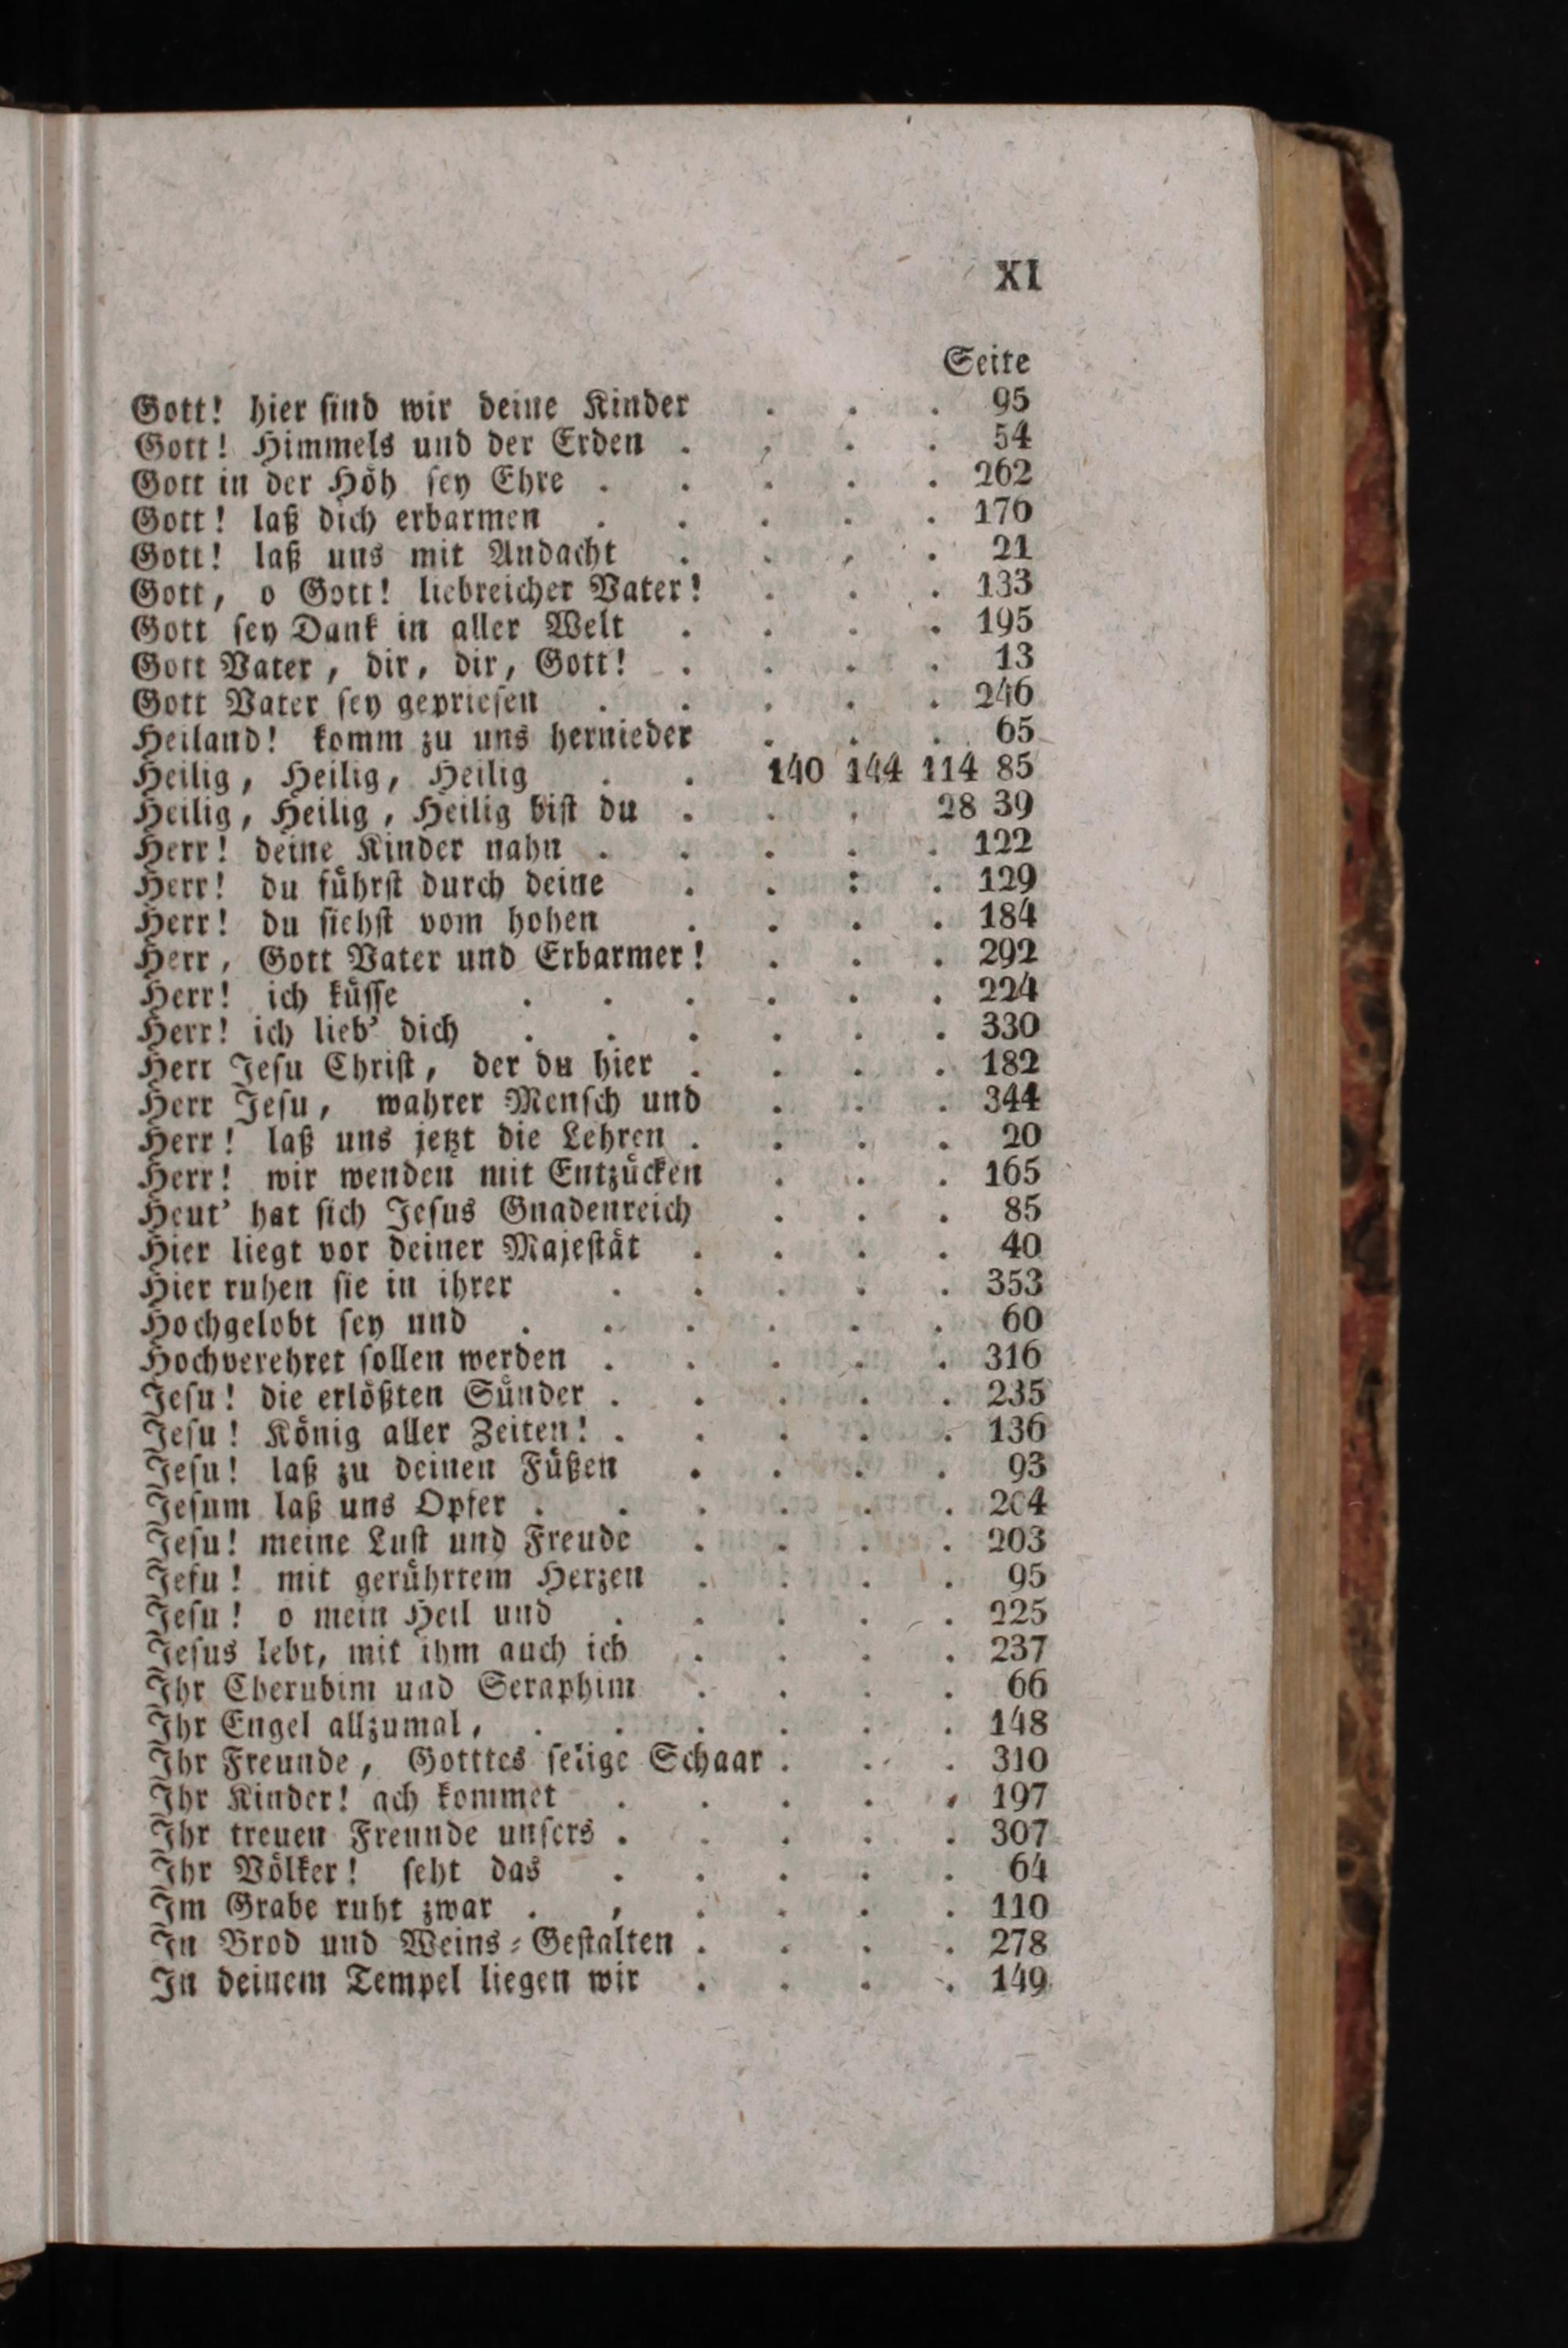 XI
Seite
Gott! hier sind wir deine Kinder . . . 95
Gott! Himmels und der Erden . , . . 54
Gott in der Höh sey Ehre . . . . . 262
Gott! laß dich erbarmen . . . . . 170
Gott! laß uns mit Andacht . . , . 21
Gott, o Gott! liebreicher Vater! . . . 133
Gott sey Dank in aller Welt . . . . 195
Gott Vater, dir, dir, Gott! . . . . 13
Gott Vater sey gepriesen . . . . . 246
Heiland! komm zu uns hernieder . . . 65
Heilig, Heilig, Heilig . . 140 144 114 85
Heilig, Heilig, Heilig bist du . . , 28 39
Herr! deine Kinder nahn . . . . . 122
Herr! du führst durch deine . . : . 129
Herr! du siehst vom hohen . . . . 184
Herr, Gott Vater und Erbarmer! . . . 292
Herr! ich küsse . . . . . . 224
Herr! ich lieb' dich . . . . . . 330
Herr Jesu Christ, der du hier . . . . 182
Herr Jesu, wahrer Mensch und . . . 344
Herr! laß uns jetzt die Lehren . . . . 20
Herr! wir wenden mit Entzücken . . . 165
Heut' hat sich Jesus Gnadenreich . . . 85
Hier liegt vor deiner Majestät . . . . 40
Hier ruhen sie in ihrer . . . . . 353
Hochgelobt sey und . . . . . . 60
Hochverehret sollen werden . . . . . 316
Jesu! die erlößten Sünder . . . . . 235
Jesu! König aller Zeiten! . . . . . 136
Jesu! laß zu deinen Füßen . . . . 93
Jesum laß uns Opfer . . . . . . 204
Jesu! meine Lust und Freude . . . . 203
Jesu! mit gerührtem Herzen . . . . 95
Jesu! o mein Heil und . . . . . 225
Jesus lebt, mit ihm auch ich . . . . 237
Ihr Cherubim und Seraphim . . . . 66
Ihr Engel allzumal, . . . . . . 148
Ihr Freunde, Gotttes selige Schaar . . . 310
Ihr Kinder! ach kommet . . . . . 197
Ihr treuen Freunde unsers . . . . . 307
Ihr Völker! seht das . . . . . 64
Im Grabe ruht zwar . , . . . . 110
In Brod und Weins-Gestalten . . . . 278
In deinem Tempel liegen wir . . . . 149